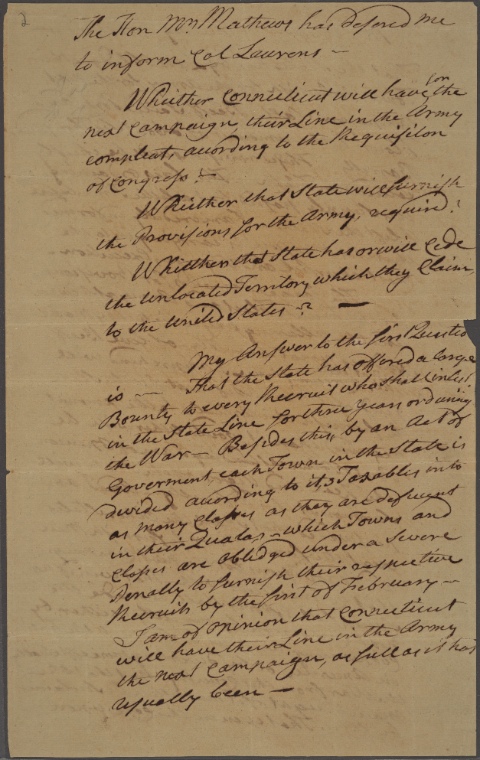 2
The Hon Mr. Mathews has desired me
to inform Col Laurens —
Whither Connecticut will have, for the
next campaign, their Line in the Army
compleat, according to the Requisition
of Congress?
Whither that State will furnish
the Provisions for the Army, required?
Whither that State has or will Cede
the unlocated Territory which they Claim
to the United States —? —
My Answer to the first Questio
is — That the State has offered a large
Bounty to every Recruit who shall inlist
in the State Line for three years or during
the War — Besides this, by an Act of
Goverment each Town in the State is
devided according to its Taxables into
as many Classes as they are deficient
in their Quotas — which Towns and
Classes are obledged under a Severe
Penalty to furnish their respective
Recruits by the first of February —
I am of opinion that Connecticut
will have their Line in the Army
the next campaign, as full as it has
usually been —